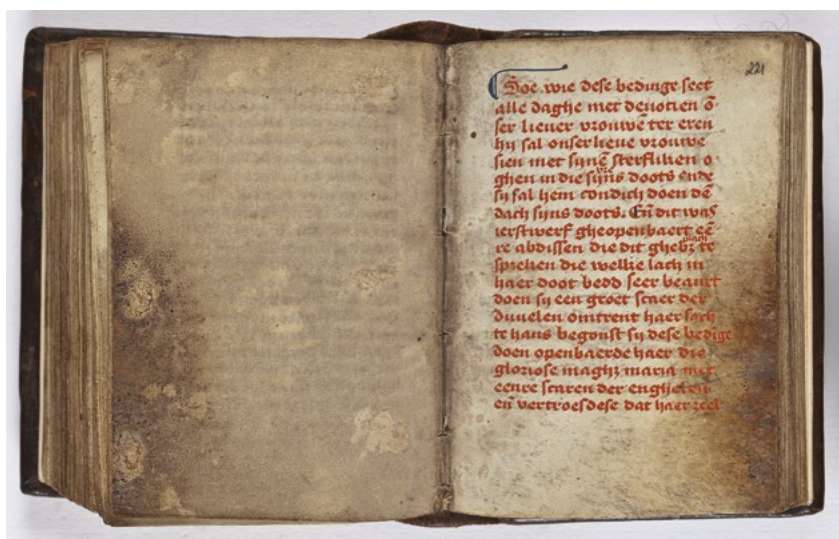 221
Soe wie dese bedinge leet
alle daghe met deuotien ō-
ser lieuer vrouwē ter eren
hij sal onser lieue vrouwe
sien met sijnē sterfliken o
ghen in die sijns doots ende
sy sal hem condich doen dē
dach sijns doots. En̄ dit was
ierstwerf gheopenbaert eē
re abdissen die dit ghebꝫ plach te
spreken die welke lach in
haer doot bedd seer beanxt
doen sy een groet scaer der
duuelen omtrent haer sach
te hans begonst sy dese bedīge
doen openbaerde haer die
gloriose maghꝫ maria met
eenre scaren der enghelen
en̄ vertroesdese dat haer zeel